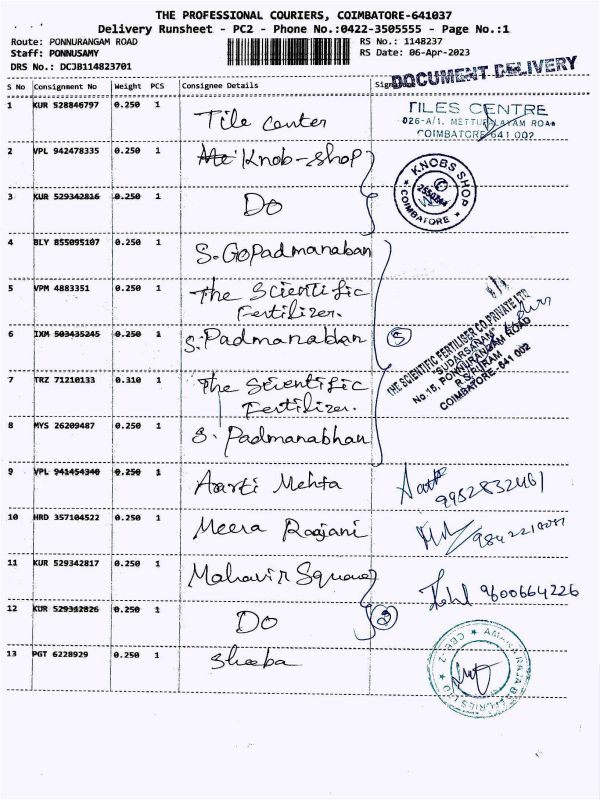 THE PROFESSIONAL COURIERS, COIMBATORE-641037
Delivery Runsheet - PC2 - Phone No.:0422-3505555 - Page No.:1
Route: PONNURANGAM ROAD
RS No.: 1148237
Staff: PONNUSAMY
RS Date: 06-Apr-2023
DRS No.: DCJB114823701
DOCUMENT DELIVERY
S No Consignment No Weight PCS Consignee Details
1 KUR 528846797 0.250 1 Tile center
TILES CENTRE
026-A/1. METTUPALAYAM ROAD
COIMBATORE 641 002
2 VPL 942478335 0.250 1 Knob-shop
KNOBS SHOP
COIMBATORE
3 KUR 529342816 0.250 1 Do
4 BLY 855095107 0.250 1 S. GOPadmanaban
5 VPM 4883351 0.250 1 The Scientific
Fertilizer.
6 IXM 503435245 0.250 1 S. Padmanabhan
5
THE SCIENTIFIC FERTILISER CO.PRIVATE LTD
"SUDARSANAM"
No.15, PONNURANGAM ROAD
R.S.PURAM
COIMBATORE-641 002
7 TRZ 71210133 0.310 1 The Scientific
Fertilizer.
8 MYS 26209487 0.250 1 S. Padmanabhan
9 VPL 941454340 0.250 1 Aarti Mehta
9952832461
10 HRD 357104522 0.250 1 Meera Raajani
11 KUR 529342817 0.250 1 Mahavir Square
9600664226
12 KUR 529342826 0.250 1 Do
2
13 PGT 6228929 0.250 1 Sheeba